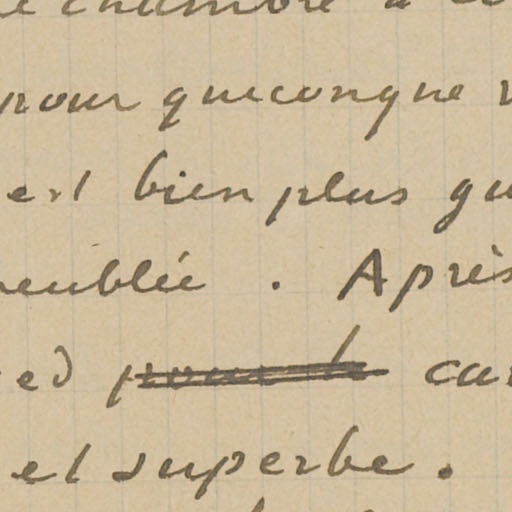 chambre à
pour quiconque
est bien plus qu
meublée . Après
ed pour le car
et superbe .